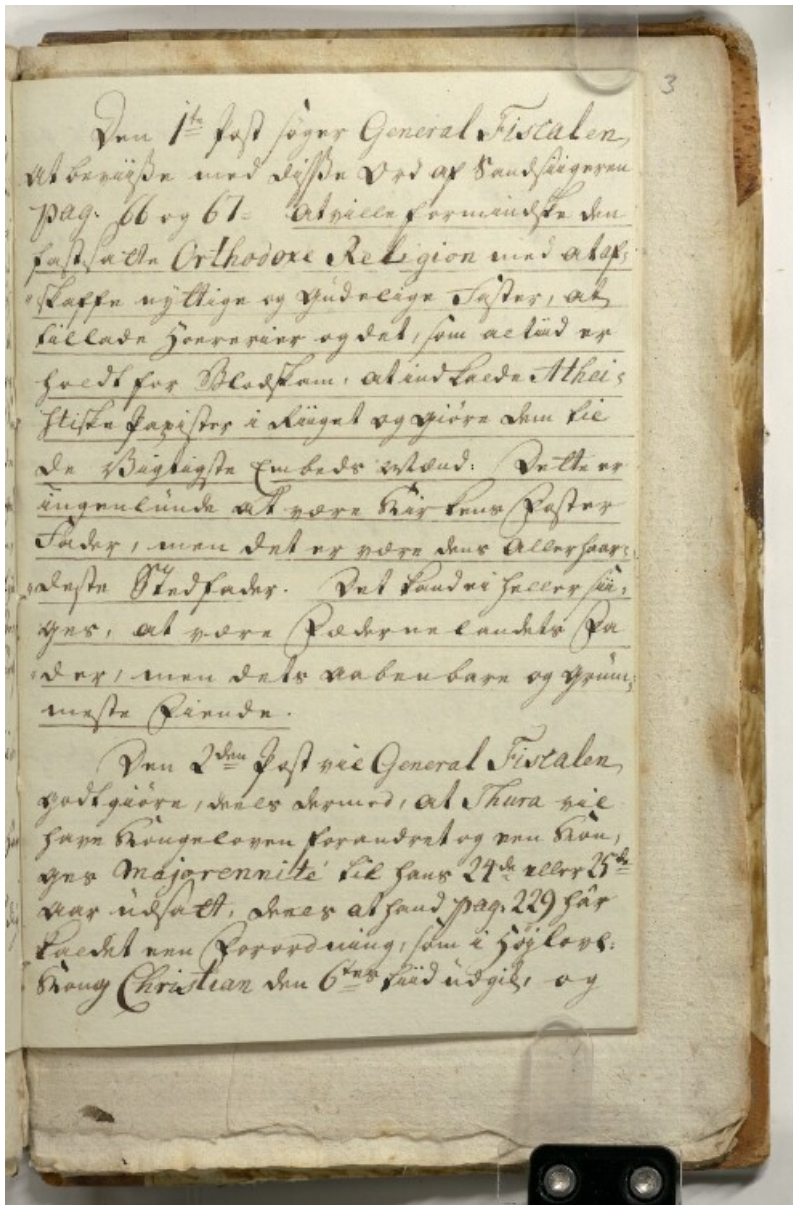 3
Den 1te Post søger General Fiscalen,
at beviiße med diße Ord af Sandsiigeren
pag: 66 og 67= at ville formindske den
fastsatte Orthodoxe Religion med at af-
"skaffe nyttige og gudelige Fæster, at
tillade Hoererier og det, som altiid er
holdt for Blodskam, at indkalde Athei-
stiske Papister i Riiget og giøre dem til
de Vigtigste Embeds Mænd: Dette er
ingenlunde at være Kirkens Foster
Fader, men det er være dens Allerhaar-
"deste Stedfader. Det kand ei heller sii-
ges, at være Fædernelandets Fa
"der, men dets aabenbare og grum-
meste Fiende.
Den 2den Post vil General Fiscalen,
godtgiøre, deels dermed, at Thura vil
have Kongeloven forandret og een Kon-
ges Majorennité til hans 24de eller 25de
Aar udsatt, deels at hand pag: 229 har
kaldet een Forordning, som i Højlovl:
Kong Christian den 6tes tiid udgik, og